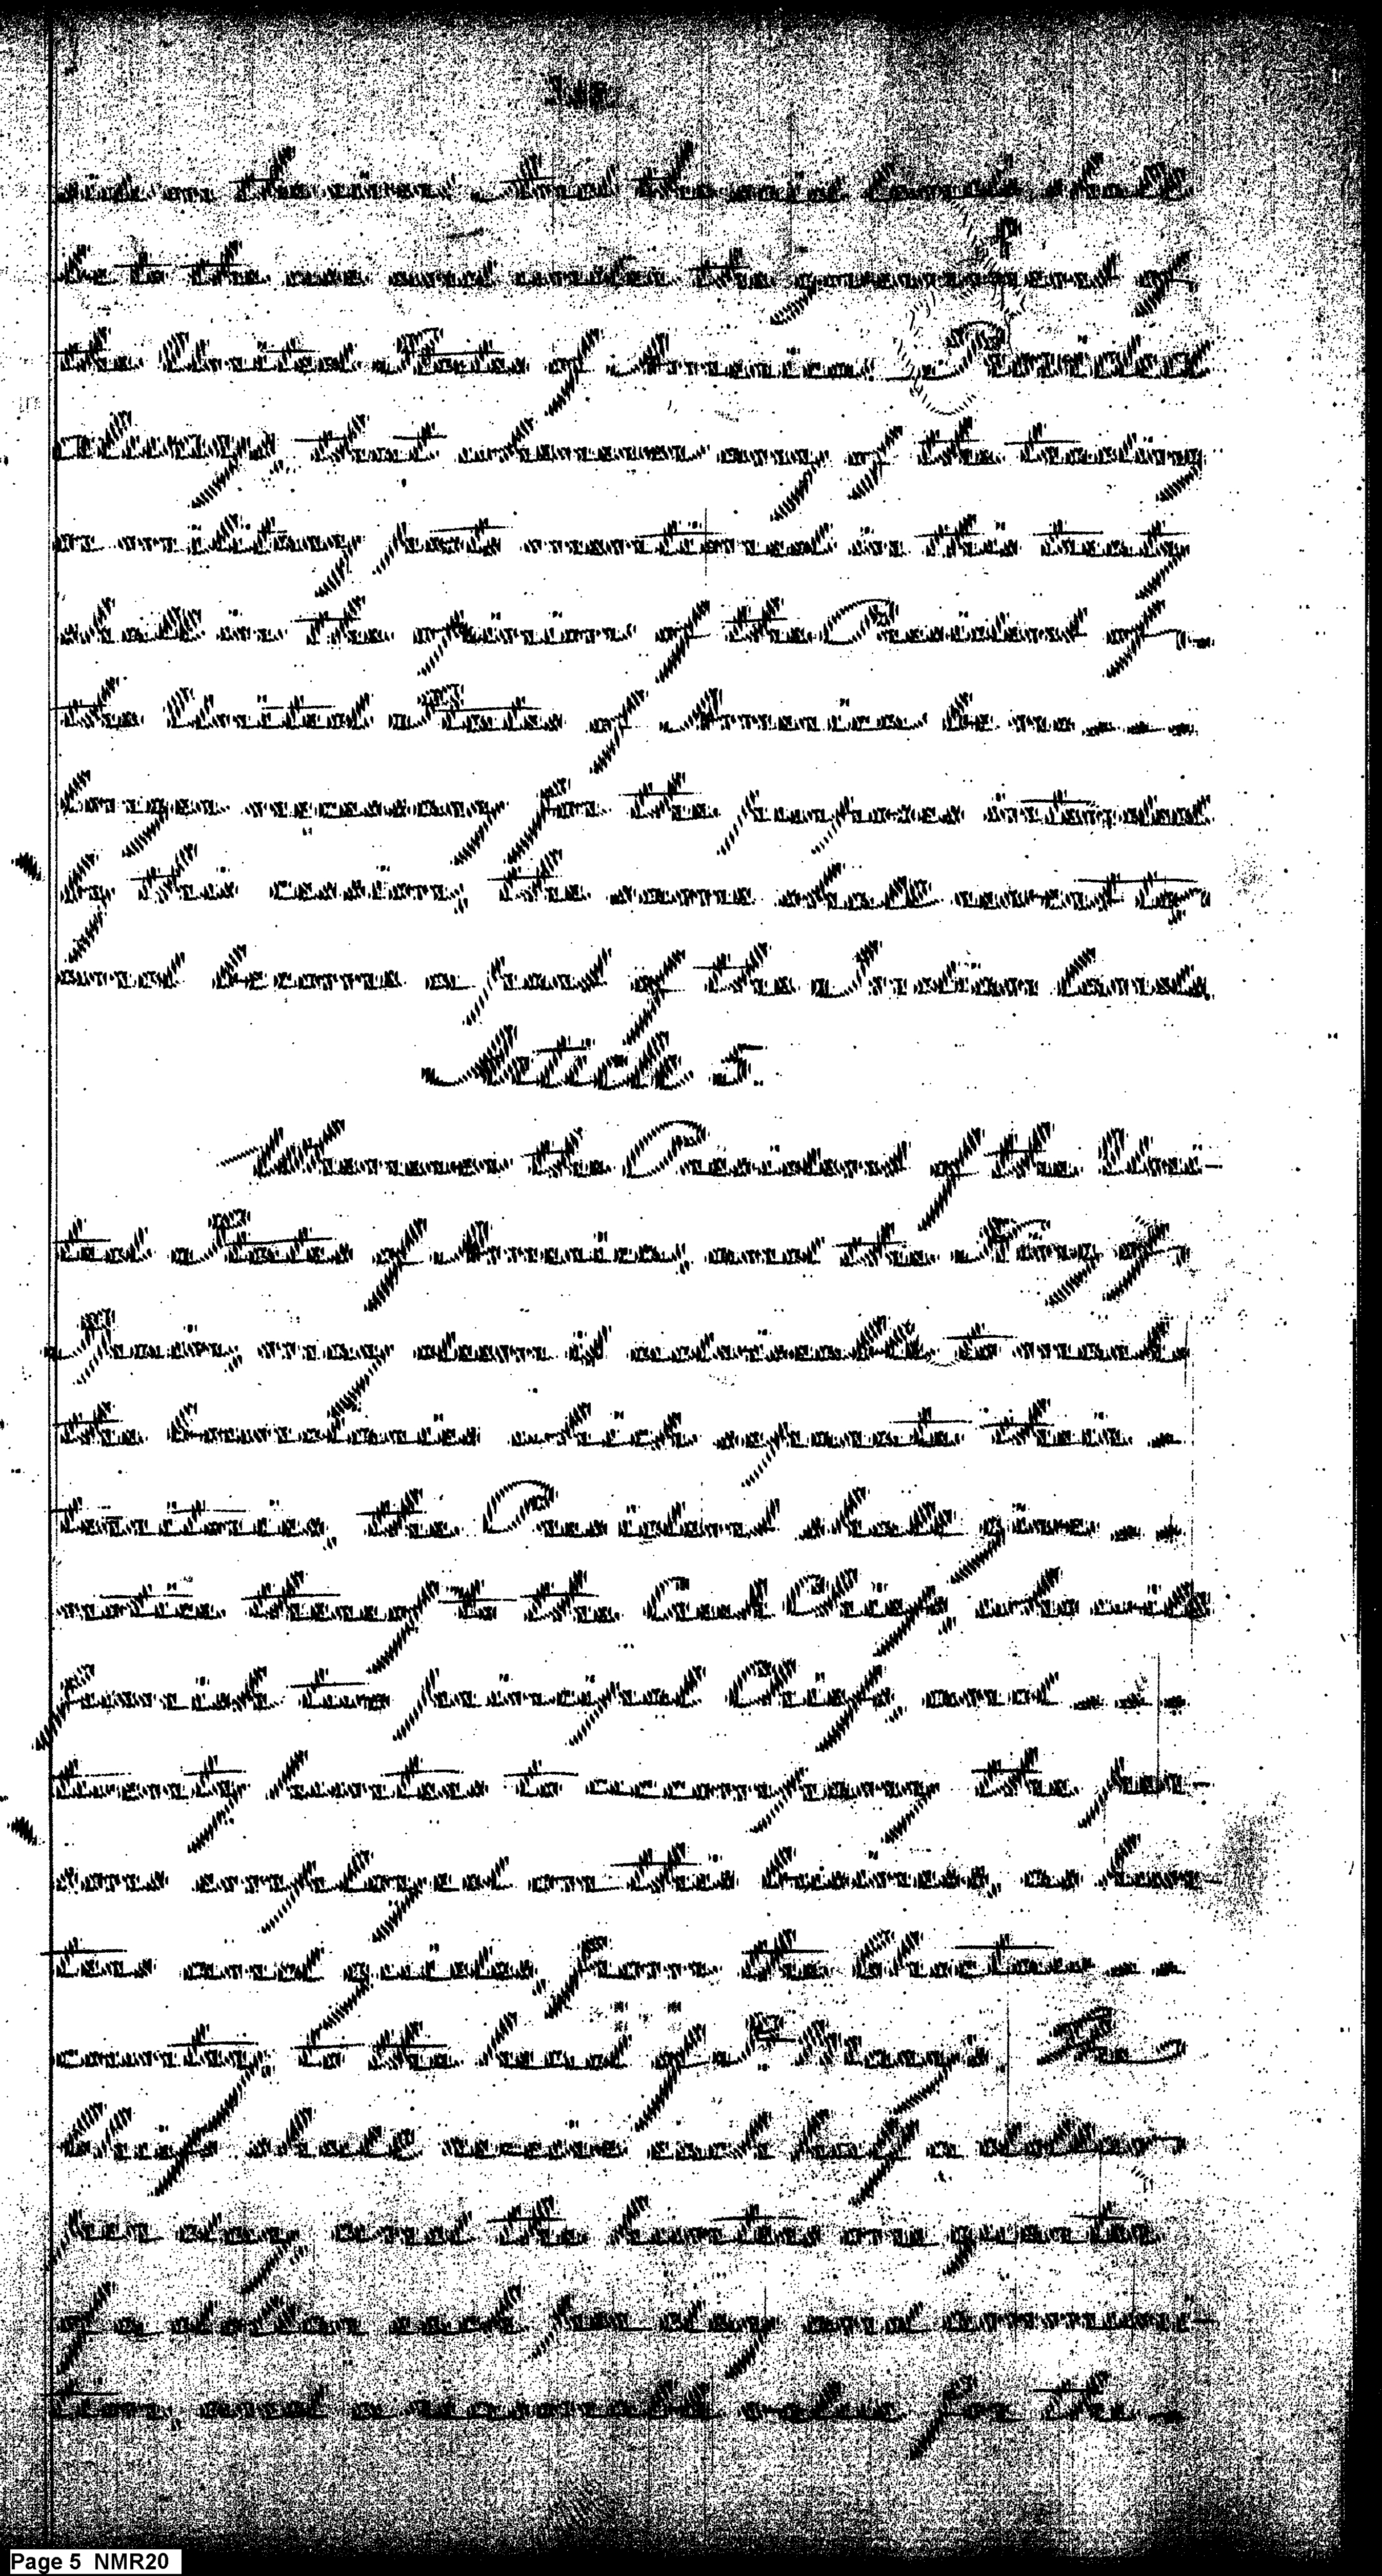 side on the river, And the said lands shall
be to the use and under the government of
the United States of America. Provided
always, that whenever any of the trading
or military posts mentioned in this treaty
shall in the opinion of the President of
the United States of America be no - - -
longer necessary for the purposes intended
by this cession, the same shall revert to,
and become a part of the Indian lands.
Article 5.
Whenever the President of the Uni-
ted States of America, and the King of
Spain, may deem it advisable to mark
the boundaries which separate their -
territories, the President shall give - -
notice thereof to the Creek Chiefs, who will
furnish two principal Chiefs, and - - -
twenty hunters to accompany the per-
sons employed on this business, as hun-
ters and guides, from the Choctaw - -
country, to the head of St. Mary's. The
Chiefs shall receive each half a dollar
per day, and the hunters one quarter
of a dollar each per day, and ammuni-
tion, and a reasonable value for the -
Page 5 NMR20